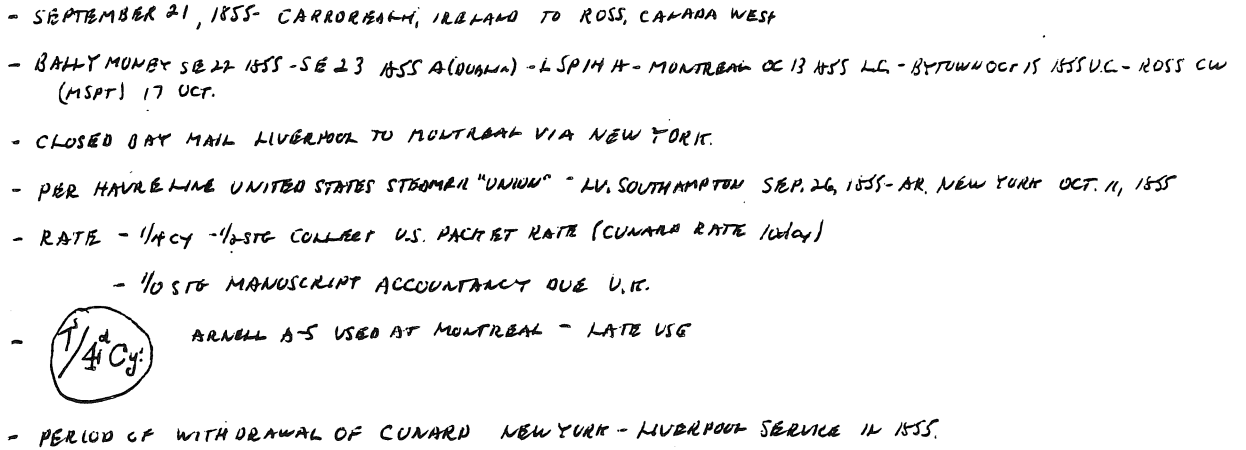 - SEPTEMBER 21, 1855 - CARROREAGH, IRELAND TO ROSS, CANADA WEST
- BALLYMONEY SE 22 1855 - SE 23 1855 A (DUBLIN) - L SP 14 A - MONTREAL OC 13 1855 L.C. - BYTOWN OCT 15 1855 U.C. - ROSS CW
(MSPT) 17 OCT.
- CLOSED BAY MAIL LIVERPOOL TO MONTREAL VIA NEW YORK.
- PER HAVRE LINE UNITED STATES STEAMER "UNION" - LV. SOUTHAMPTON SEP. 26, 1855 - AR. NEW YORK OCT. 11, 1855
- RATE - 1/4 CY - 1/2 STG COLLECT U.S. PACKET RATE (CUNARD RATE 10d cy)
- 1/0 STG MANUSCRIPT ACCOUNTANCY DUE U.K.
- 1s/4d Cy. ARNELL A-5 USED AT MONTREAL - LATE USE
- PERIOD OF WITHDRAWAL OF CUNARD NEW YORK - LIVERPOOL SERVICE IN 1855.